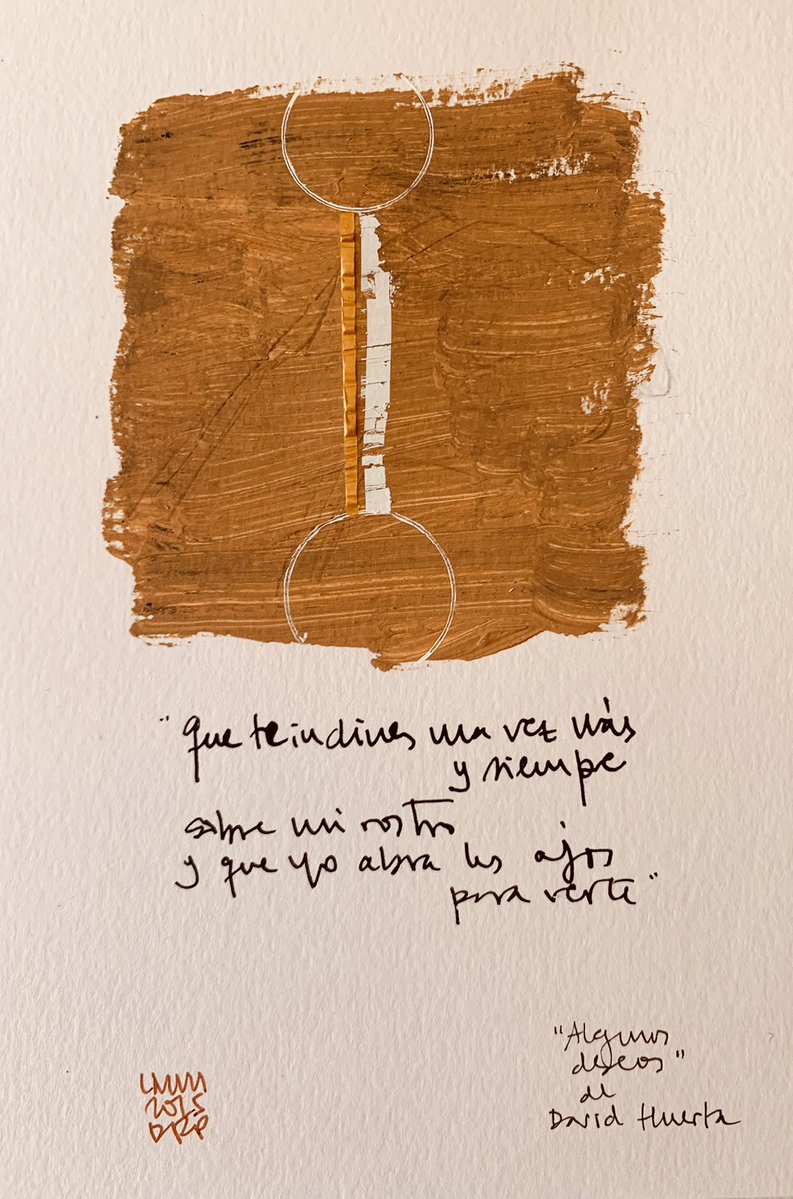 "que te inclines una vez más
y siempre
sobre mi rostro
y que yo abra los ojos
para verte"
"Algunos
deseos"
de
David Huerta
2025